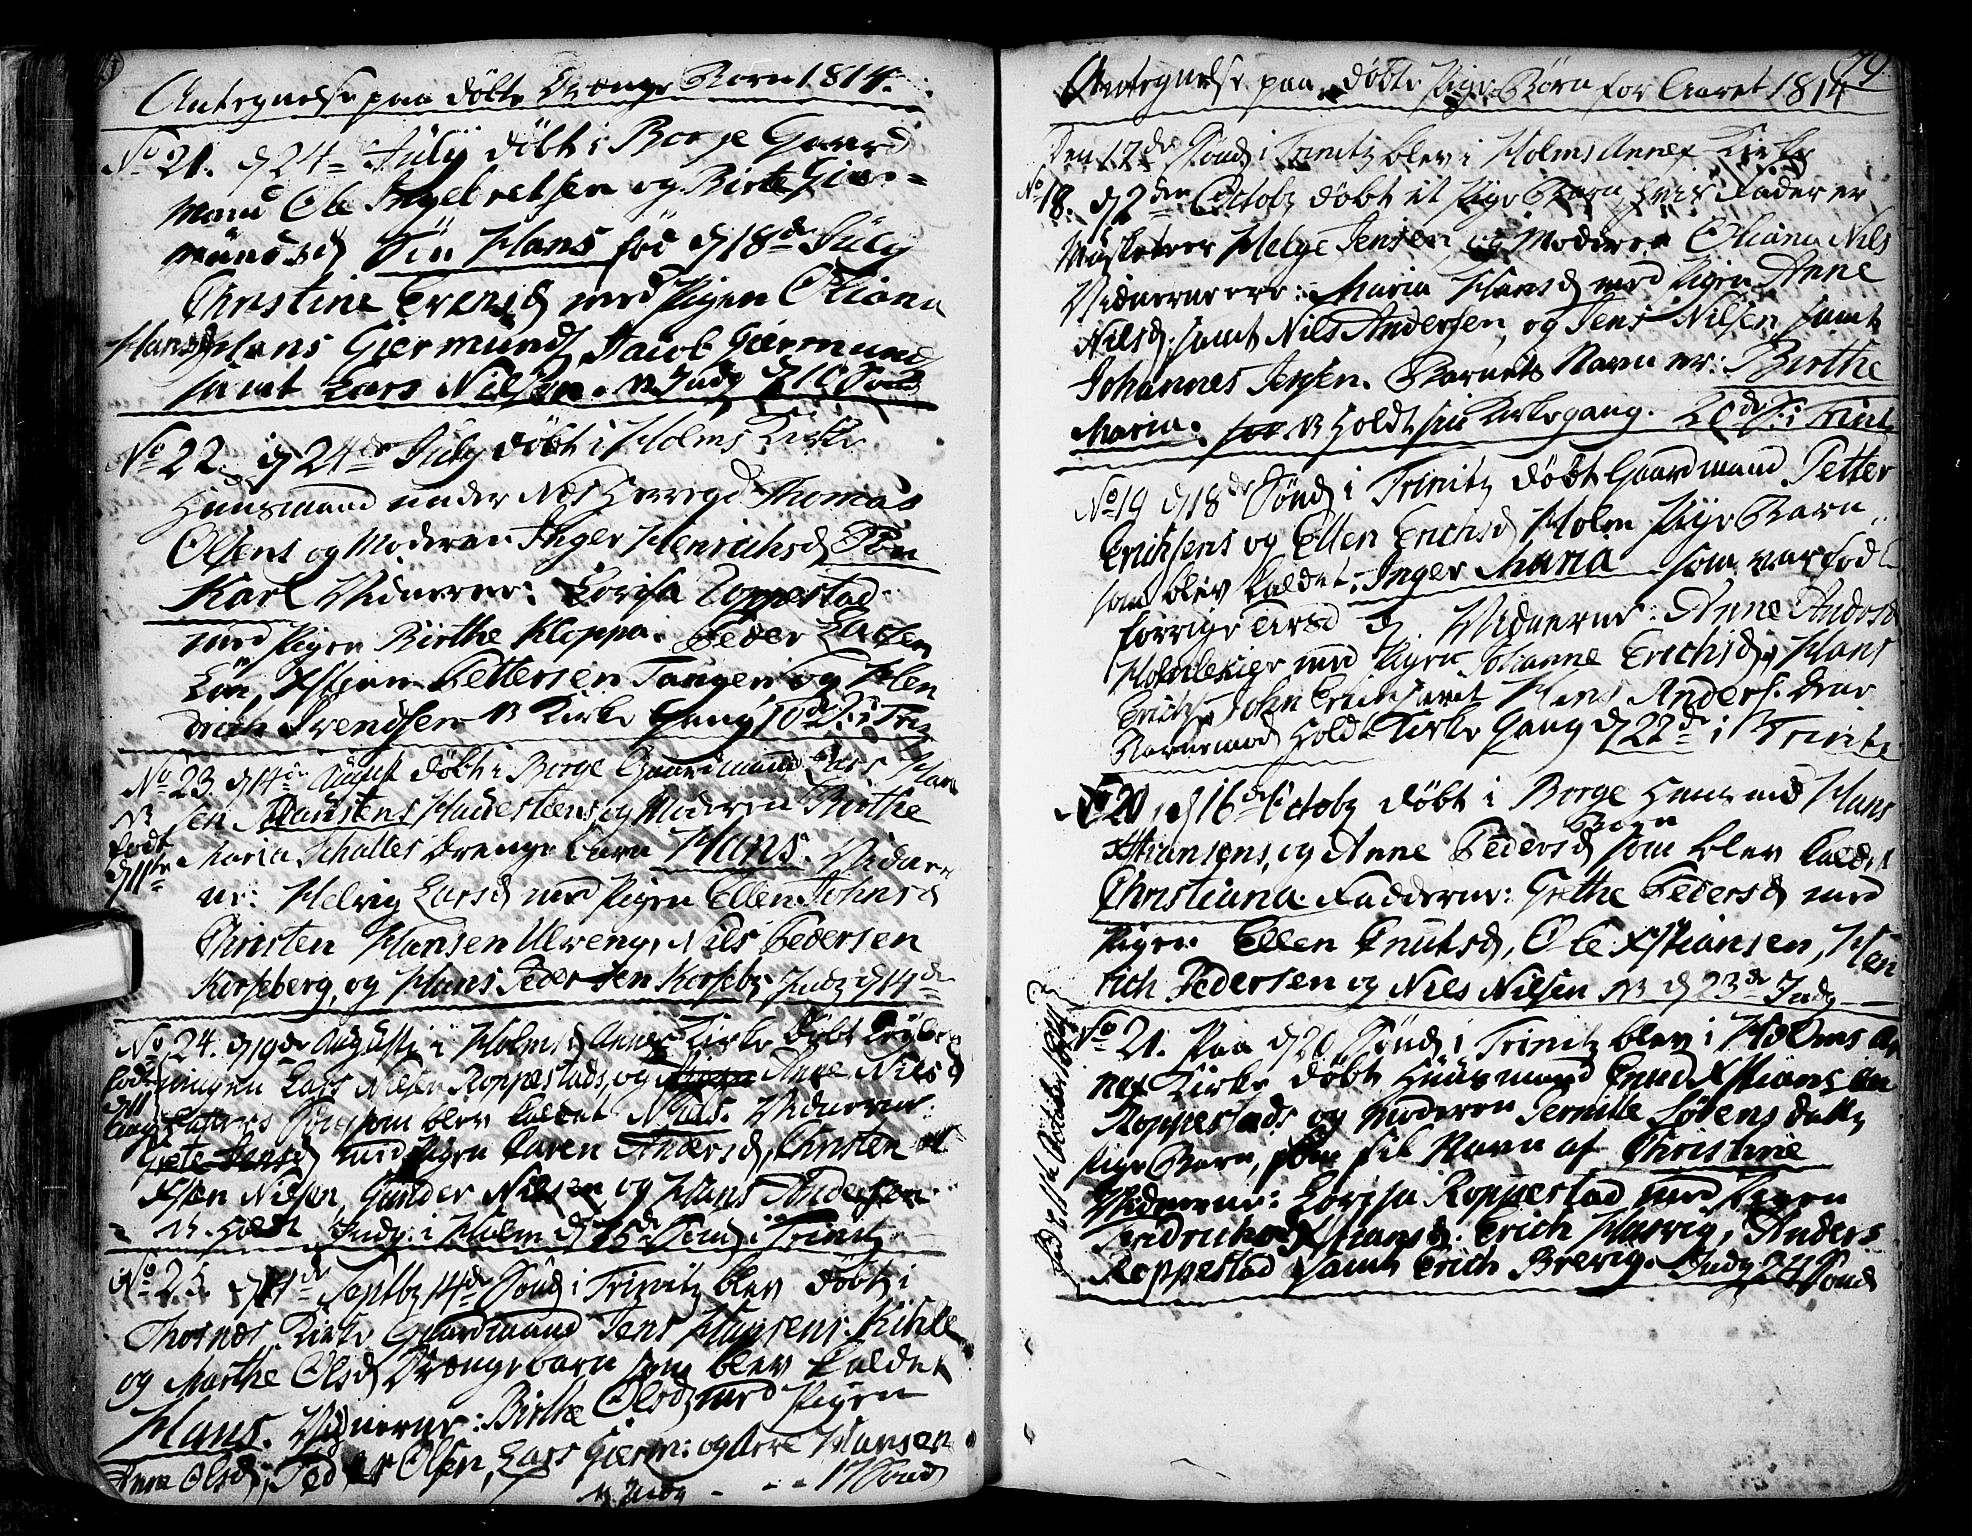 Antegnelse paa döbte Drænge Børn 1814.
No 21. d 24 July döbt i Borge Gaard
mand Ole Ingebretsen og Birte Gier=
münds d Sön Hans fød d 18de July
Christine Evens d med Pigen Oliana
Hans d Hans Giermünds, Jacob Giermunds
samt Lars Nilsen. NB Indg d 10 Sönd
No 22. d 24de July döbt i Holms Kirke
Huusmand under Næs Herregd Thomas
Olsens og Moderen Inger Henrichs d Sön
Karl Vidnerne: Lovisa Roppestad
med Pigen Birthe Kloppa. Peder
Xstian Pettersen Tangen og Hen
drich Svendsen NB Kirke Gang 10de S: i Trin
No 23. d 14de August döbt i Borge Gaardmand Lars Han
sen Haüestens og Moderen Birthe
NB født d 11te
Maria Schalles Drænge Barn Hans. Vidner
ne: Helvig Lars d med Pigen Ellen Johns d
Christen Hansen Ulveng, Nils Pedersen
Korseberg, og Hans Pedersen Korsebg Indg d 14de
No 24. d 19de Augusti i Holms Annex Kirke döbt
født d 11 Aug
pingen Lars Nilsen Roppestads og Anne Niels d
Sön som blev kaldet Niels. Vidnerne:
Grete Jens d med Pigen Karen Anders d, Christen
Xsten Nilsen, Gunder Nielsen og Hans Andersen
NB. Holdt Indg. i Holm d 15de Sönd i Trinitz
No 25. d 4de Septbz 14de Sönd i Trinitz blev döbt i
Thosnæs Kirke Gaardmand Jens Hansens Kihle
og Marthe Ols d Drængebarn som blev kaldet
Hans. Vidnerne: Birthe Ols d med Pigen
Anne Ols d, Peder Olsen, Lars Gierm: og Arve Hansen
NB Indg - - - 17 Sönd
79
Antegnelse paa döbte Pige Børn for Aaret 1814
Den 17de Sönd i Trinitz blev i Holms Annex Kirke
No 18. d 2den Octobz döbt et Pige Barn, hvis Fader er
Müsketeer Helge Jensen og Moderen Oliana Nils
Vidnerne ere: Maria Hans d med Pigen Anne
Nils d, samt Nils Andersen, og Jens Nilsen samt
Johannes Jensen. Barnets Navn er: Birthe
Maria. NB Holdt sin Kirkegang. 20de S: i Trinit
No 19 d 18de Sönd i Trinitz döbt Gaardmand Petter
Eriksens og Ellen Erichs d Holm Pige Barn
som blev kaldet: Inger Maria som var föd
forrige Vidnerne: Anne Anders d
med Pigen Johanne Erichs d, Hans
Erichs, John samt Hans Anders.
Barnemod Holdt Kirke Gang d 22de i Trinitz
No 20, d 16de Octobz döbt i Borge Huusmd Hans
Xstiansens, og Anne Peders d Barn som blev kaldet
Christiana. Fadderne: Grethe Peders d med
Pigen Ellen Knuts d, Ole Xstiansen, Hen
rich Pedersen og Niels Nilsen NB d 23de Indg
No 21. Paa d 20 Sönd i Trinitz blev i Holms An
nex Kirke döbt Huusmand Knud Xstiansen
Roppestads og Moderen Pernille Sörens datte
Pige Barn, som fik Navn af Christine
Vidnerne: Lovisa Roppestad med Pigen
Fredriche Xstians d. Erich Harvig, Anders
Roppestad samt Erich Brevig. Indg 24 Sönd